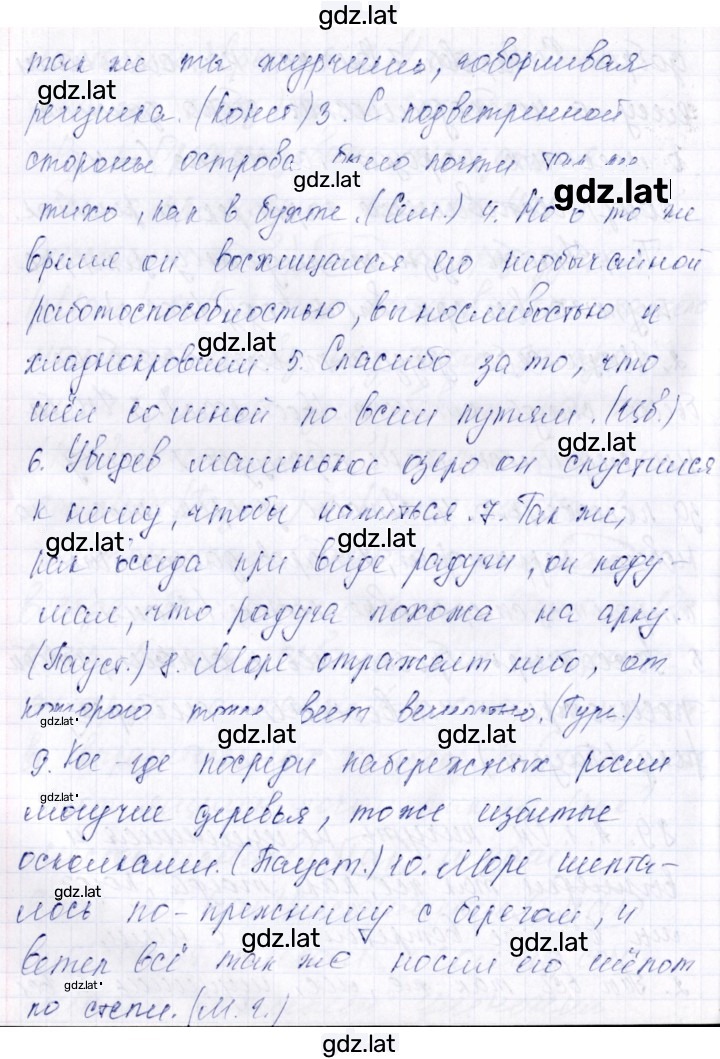 gdz.lat
так же ты журчишь, говорливая
gdz.lat
речушка. (Конст.) 3. С подветренной
стороны острова было почти так же
gdz.lat
gdz.lat
тихо, как в бухте. (Сем.) 4. Но в то же
время он восхищался его необычайной
работоспособностью, выносливостью и
gdz.lat
хладнокровием. 5. Спасибо за то, что
шёл со мной по всем путям. (Цв.)
gdz.lat
6. Увидев маленькое озеро он спустился
к нему, чтобы напиться. 7. Так же,
gdz.lat gdz.lat
как всегда при виде радуги, он поду-
мал, что радуга похожа на арку.
(Пауст.) 8. Море отражает небо, от
которого тоже веет вечностью. (Тург.)
gdz.lat
gdz.lat gdz.lat
9. Кое-где посреди набережных росли
gdz.lat
могучие деревья, тоже избитые
осколками. (Пауст.) 10. Море шепта-
gdz.lat
лось по-прежнему с берегом, и
gdz.lat gdz.lat
ветер всё так же носил его шёпот
gdz.lat
по степи. (М. Г.)
gdz.lat